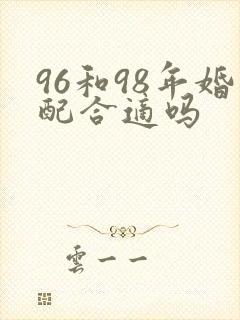 96和98年婚
配合适吗
雲一一